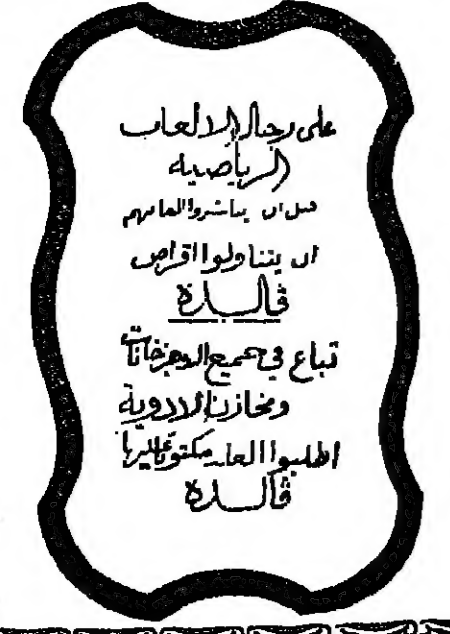 على رجال الالعاب
الرياضيه
قبل ان يباشروا العابهم
ان يتناولوا اقراص
ڤالــدة
تباع في جميع الاجزخانات
ومخازن الادوية
اطلبوا العلب مكتوبًا عليها
ڤالــدة